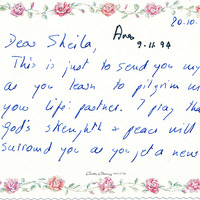 20.10.
Dear Sheila,
Ans
9.11.94
This is just to send you my
as you learn to pilgrim
your life partner. I pray that
God's strength & peace will
surround you as you get a new